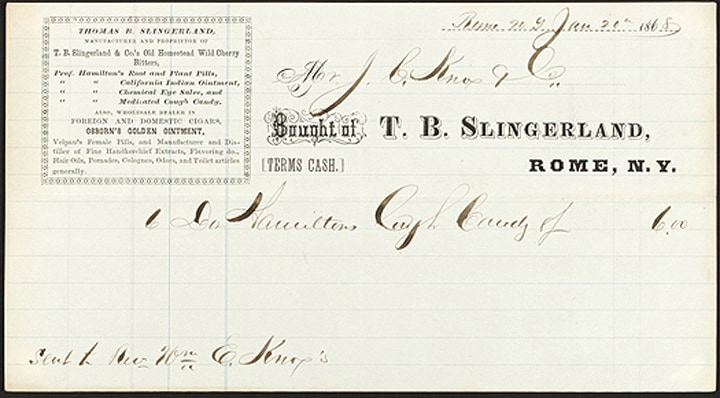 THOMAS B. SLINGERLAND,
MANUFACTURER AND PROPRIETOR OF
T. B. Slingerland & Co.'s Old Homestead Wild Cherry
Bitters,
Prof. Hamilton's Root and Plant Pills,
" " California Indian Ointment,
" " Chemical Eye Salve, and
" " Medicated Cough Candy.
ALSO, WHOLESALE DEALER IN
FOREIGN AND DOMESTIC CIGARS,
OSBORN'S GOLDEN OINTMENT,
Velpau's Female Pills, and Manufacturer and Dis-
tiller of Fine Handkerchief Extracts, Flavoring do.,
Hair Oils, Pomades, Colognes, Odors, and Toilet articles
generally.
Rome N.Y. Jan 20th 1868
Mr J. C. Knox & Co.
Bought of T. B. SLINGERLAND,
[TERMS CASH.] ROME, N.Y.
6 Do Hamiltons Cough Candy 6.00
Sent to Rev Wm E. Knox's